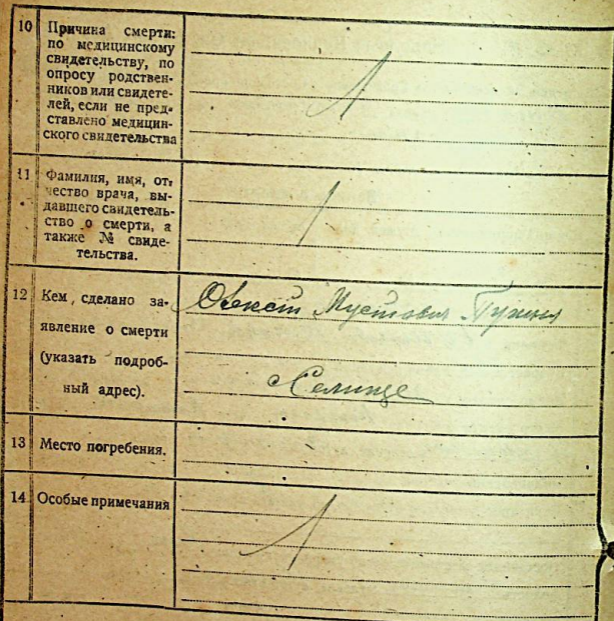 10 Причина смерти:
по медицинскому
свидетельству, по
опросу родствен-
ников или свидете-
лей, если не пред-
ставлено медицин-
ского свидетельства
11 Фамилия, имя, от-
чество врача, вы-
давшего свидетель-
ство о смерти, а
также № свиде-
тельства.
12 Кем сделано за-
явление о смерти
(указать подроб-
ный адрес).
Селище
13 Место погребения.
14 Особые примечания